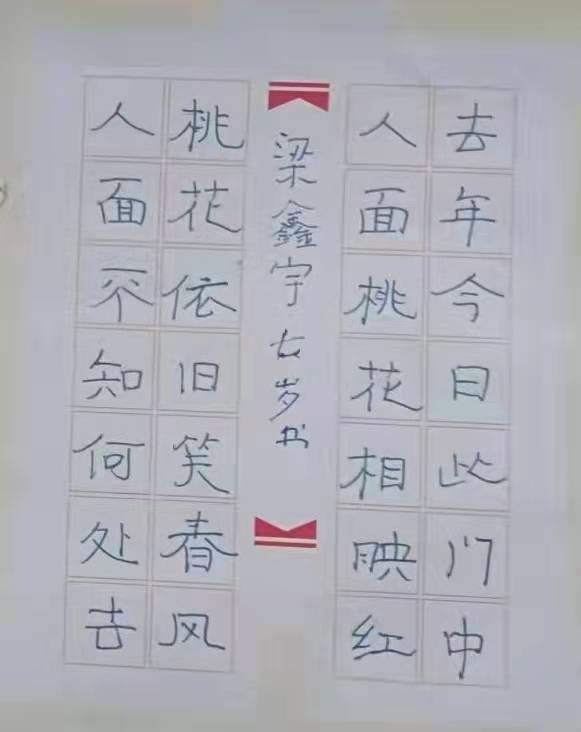 去年今日此门中
人面桃花相映红
梁鑫宇 七岁书
桃花依旧笑春风
人面不知何处去